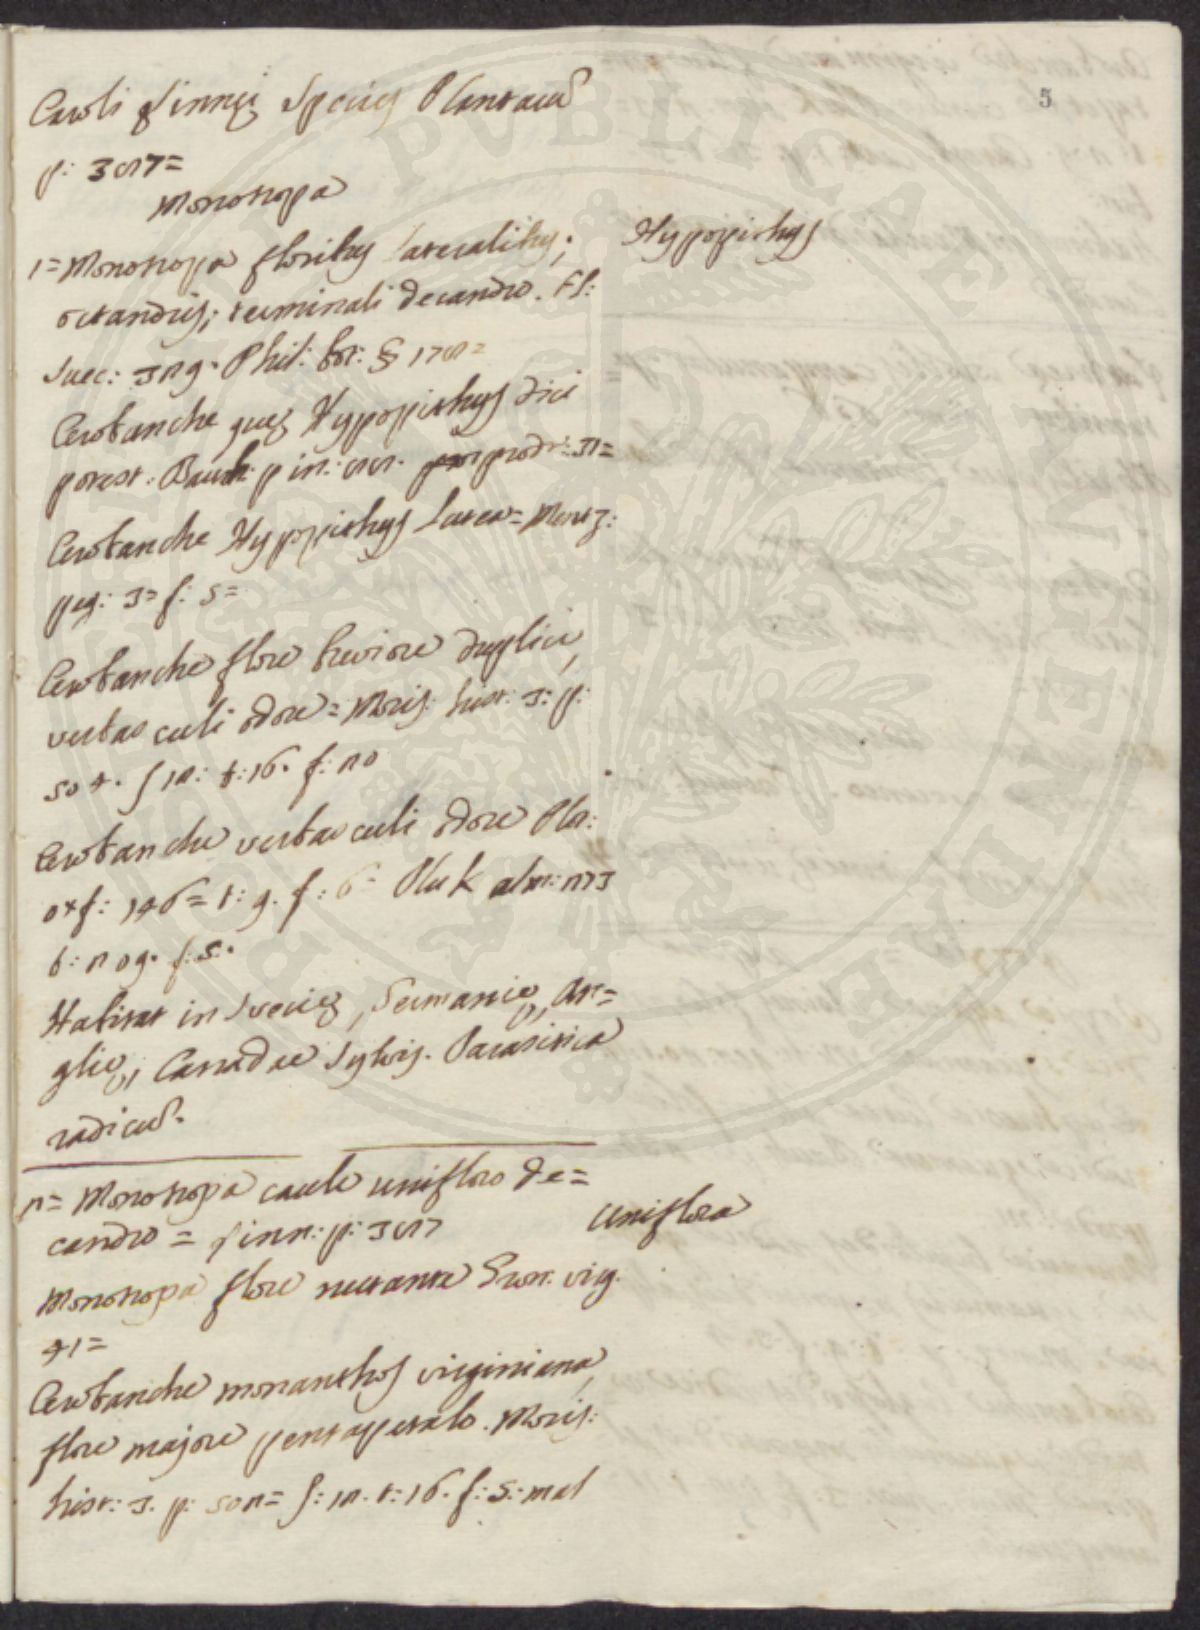 Caroli Linnęi Species Plantarũ
5
p: 387=
Monotropa
1= Monotropa floribus lateralibus;
Hypopithys
octandris; terminali decandro. Fl:
suec: 329. Phil: bot: § 178=
Orobanche quę Hypopithys dici
potest. Bauh: pin: 88. prodr: 31=
Orobanche Hypopithys lutea= Mentz:
pug: 3= f: 5=
Orobanche flore breviore duplici,
verbasculi odore= Moris: hist: 3: p:
504. S 12: t: 16. f: 20
Orobanche verbasculi odore Plot:
oxf: 146= t: 9. f: 6= Pluk alm: 273
t: 209. f: 5.
Habitat in Svecię, Germanię, An=
glię, Canadae Sylvis. Parasitica
radicũ.
2= Monotropa caule unifloro de=
candro= Linn: p: 387
Uniflora
Monotropa flore nutante Gron. virg.
41=
Orobanche monanthos virginiana,
flore majore pentapetalo. Moris:
hist: 3. p: 502= S: 12. t: 16. f: 5: mal
PVBLICAE